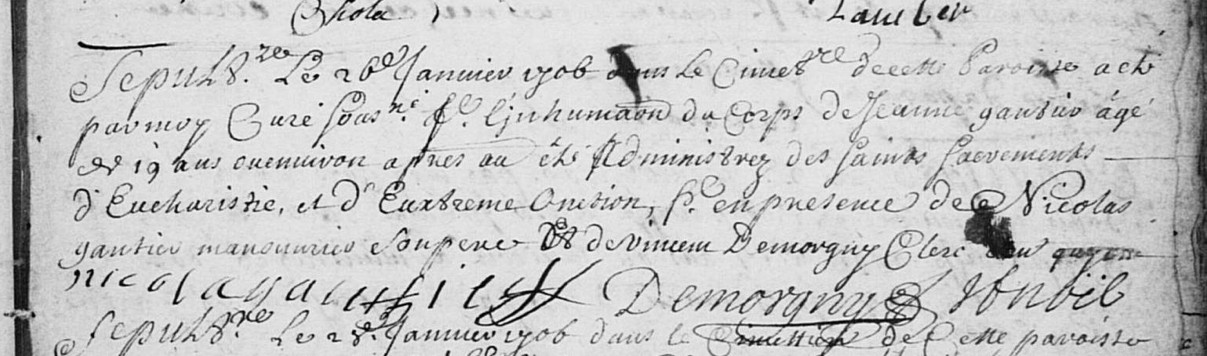 Lambert
Sepult.re Le 26e Janvier 1706 dans Le Cimet.re de cette Paroisse a eté
par moy Curé sous.né f.e l'inhumaōn du Corps de Jeanne gautier âgé
de 19 ans ou environ apres au été Administrez des saints sacrements
d'Eucharistie, et d'Euxtreme Onction, f.e en presence de Nicolas
gautier manouvrier son pere Et de Vincent Demorgny Clerc
nicola gautier Demorgny
Sepult.re Le 28.e Janvier 1706 dans le Cimetiere de Cette paroisse